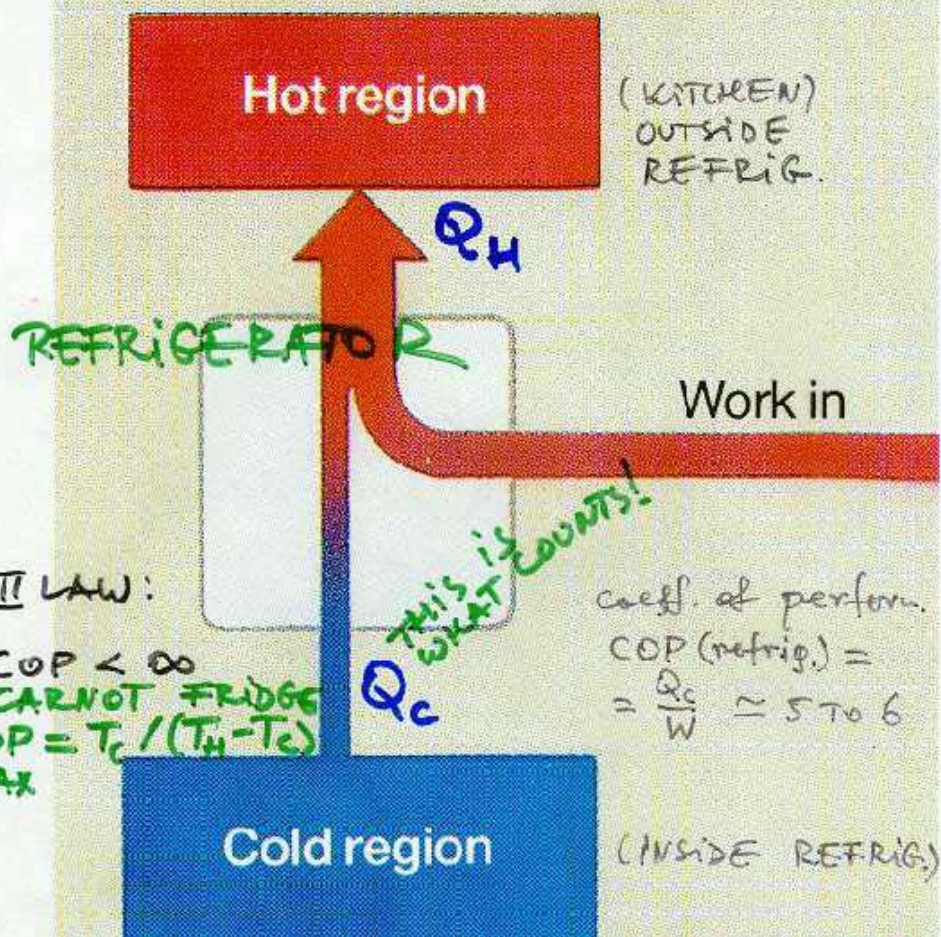 Hot region
(KITCHEN)
OUTSIDE
REFRIG.
Q_H
REFRIGERATOR
Work in
THIS IS
WHAT COUNTS!
II LAW:
COP < ∞
CARNOT FRIDGE
OP = T_C / (T_H - T_C)
AX
Q_C
coeff. of perform.
COP (refrig.) =
= Q_C / W ≃ 5 TO 6
Cold region
(INSIDE REFRIG.)